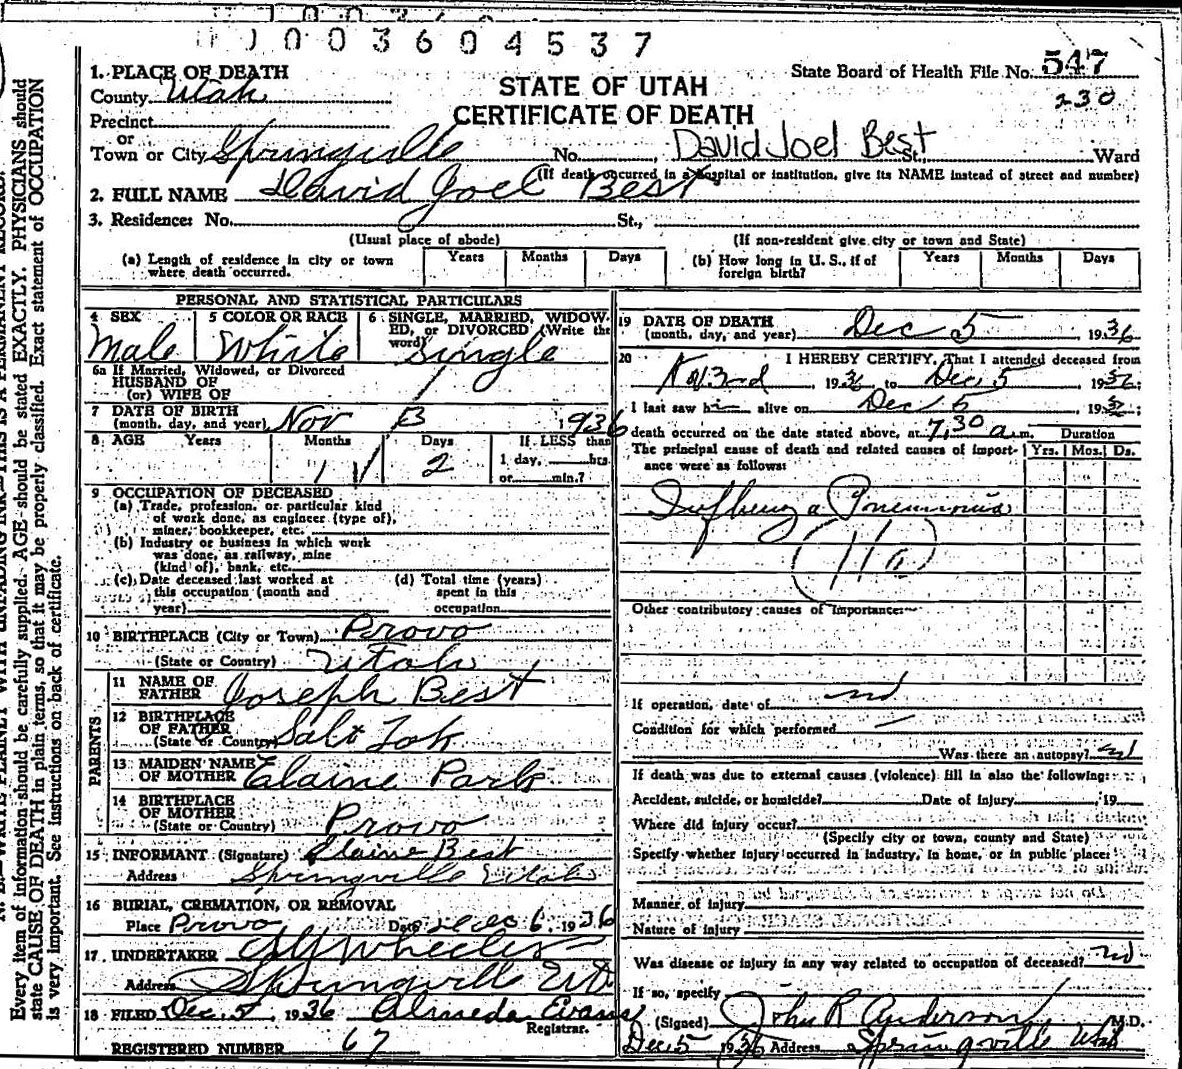 1003604537
1. PLACE OF DEATH
County Utah
Precinct
or
Town or City Springville No. David Joel Best St., Ward
(If death occurred in a hospital or institution, give its NAME instead of street and number)
STATE OF UTAH
CERTIFICATE OF DEATH
State Board of Health File No. 547
230
2. FULL NAME David Joel Best
3. Residence: No. St.,
(Usual place of abode) (If non-resident give city or town and State)
(a) Length of residence in city or town where death occurred. Years Months Days
(b) How long in U. S., if of foreign birth? Years Months Days
PERSONAL AND STATISTICAL PARTICULARS
4 SEX Male
5 COLOR OR RACE White
6 SINGLE, MARRIED, WIDOWED, or DIVORCED (Write the word) Single
6a If Married, Widowed, or Divorced
HUSBAND OF
(or) WIFE OF
7 DATE OF BIRTH
(month, day, and year) Nov 3 1936
8 AGE Years Months Days If LESS than
1 2 1 day, hrs.
or min.?
9 OCCUPATION OF DECEASED
(a) Trade, profession, or particular kind
of work done, as engineer (type of),
miner, bookkeeper, etc.
(b) Industry or business in which work
was done, as railway, mine
(kind of), bank, etc.
(c) Date deceased last worked at
this occupation (month and
year)
(d) Total time (years)
spent in this
occupation
10 BIRTHPLACE (City or Town) Provo
(State or Country) Utah
PARENTS
11 NAME OF FATHER Joseph Best
12 BIRTHPLACE OF FATHER
(State or Country) Salt Lak
13 MAIDEN NAME OF MOTHER Elaine Park
14 BIRTHPLACE OF MOTHER
(State or Country) Provo
15 INFORMANT (Signature) Elaine Best
Address Springville Utah
16 BURIAL, CREMATION, OR REMOVAL
Place Provo Date Dec 6, 1936
17 UNDERTAKER Wheeler
Address Springville Ut
18 FILED Dec. 5, 1936 Almeda Evans
Registrar.
REGISTERED NUMBER 67
19 DATE OF DEATH
(month, day, and year) Dec 5 1936
20 I HEREBY CERTIFY, That I attended deceased from
Nov 3rd, 1936 to Dec. 5, 1936;
I last saw him alive on Dec 5, 1936;
death occurred on the date stated above, at 7,30 a.m. Duration
The principal cause of death and related causes of importance were as follows: Yrs. Mos. Ds.
Influenza Pneumonia
(11a)
Other contributory causes of importance:
If operation, date of no
Condition for which performed
Was there an autopsy? no
If death was due to external causes (violence) fill in also the following:
Accident, suicide, or homicide? Date of injury , 19
Where did injury occur?
(Specify city or town, county and State)
Specify whether injury occurred in industry, in home, or in public place:
Manner of injury
Nature of injury
Was disease or injury in any way related to occupation of deceased? no
If so, specify
(Signed) John R Anderson M.D.
Dec 5 1936 Address Springville Utah
Every item of information should be carefully supplied. AGE should be stated EXACTLY. PHYSICIANS should
state CAUSE OF DEATH in plain terms, so that it may be properly classified. Exact statement of OCCUPATION
is very important. See instructions on back of certificate.